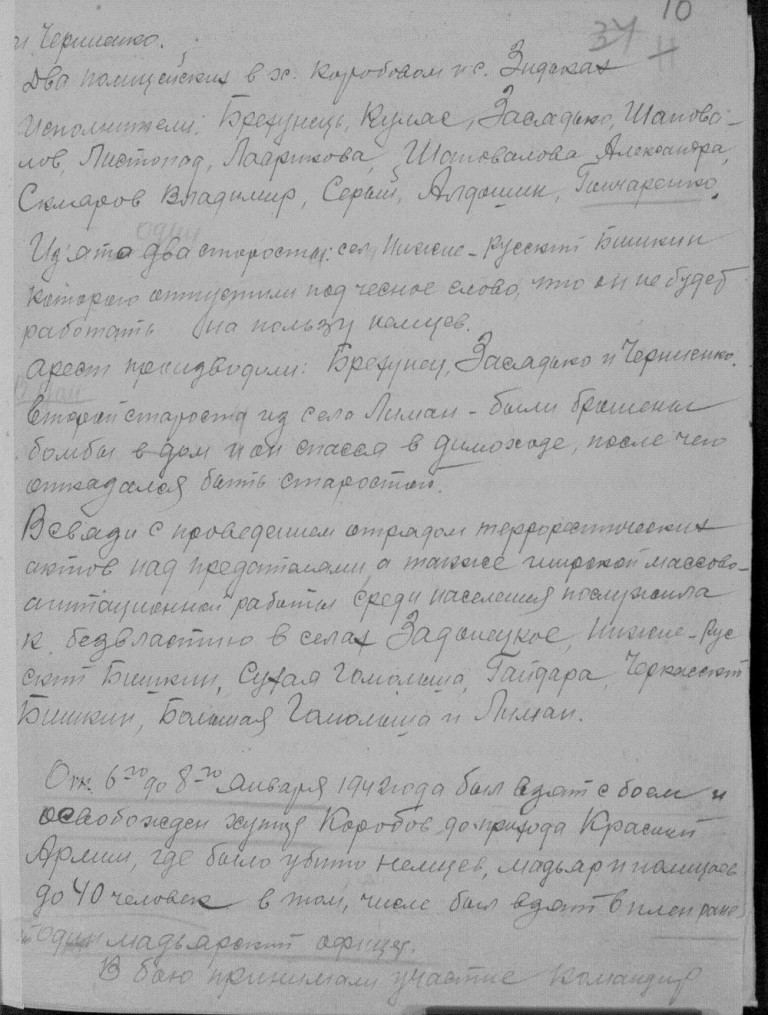 10
34 11
и Черниенко.
Два полицейских в х. Коробовом и с. Зидьках
Исполнители: Брехунец, Кулас, Засядько, Шапова-
лов, Листопад, Лавринова, Шаповалова Александра,
Скляров Владимир, Серый, Алдошин, Гончаренко.
один
Из'ято два старосты: сел. Нижне-Русский Бишкин
которого отпустили под чесное слово, что он не будет
работать на пользу немцев.
Арест производили: Брехунец, Засядько и Черниенко.
Второй староста из село Лиман - были брошены
бомбы в дом и он спасся в димоходе, после чего
отказался быть старостой.
Всвязи с проведением отрядом террористических
актов над предателями, а также широкой массово-
агитационной работы среди населения послужила
к безвластию в селах Задонецкое, Нижне-Рус
ский Бишкин, Сухая Гомольша, Гайдара, Черкасский
Бишкин, Большая Гомольша и Лиман.
От 6го до 8го января 1942 года был взят с боем и
освобожден хутор Коробов до прихода Красной
Армии, где было убито немцев, мадьяр и полицаев
до 40 человек в том, числе был взят в плен ране
один мадьярский офицер.
В бою принимали участие командир